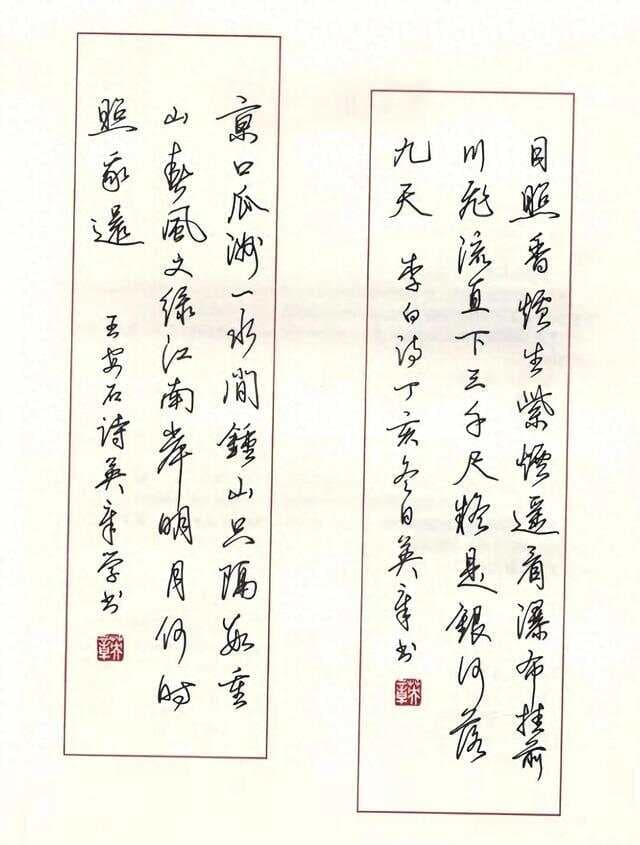 日照香爐生紫煙遥看瀑布挂前
川飛流直下三千尺疑是銀河落
九天 李白诗丁亥冬日英章书
英章
京口瓜洲一水間鍾山只隔數重
山春風又緑江南岸明月何时
照我還 王安石诗英章学书
英章